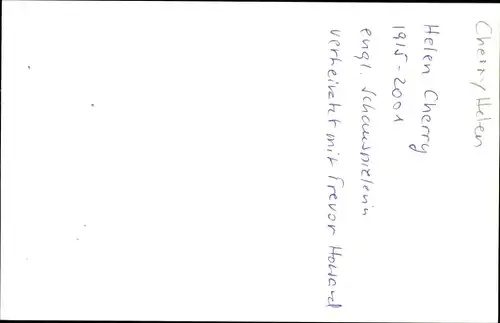 Cherry Helen
Helen Cherry
1915-2001
engl. Schauspielerin
verheiratet mit Trevor Howard